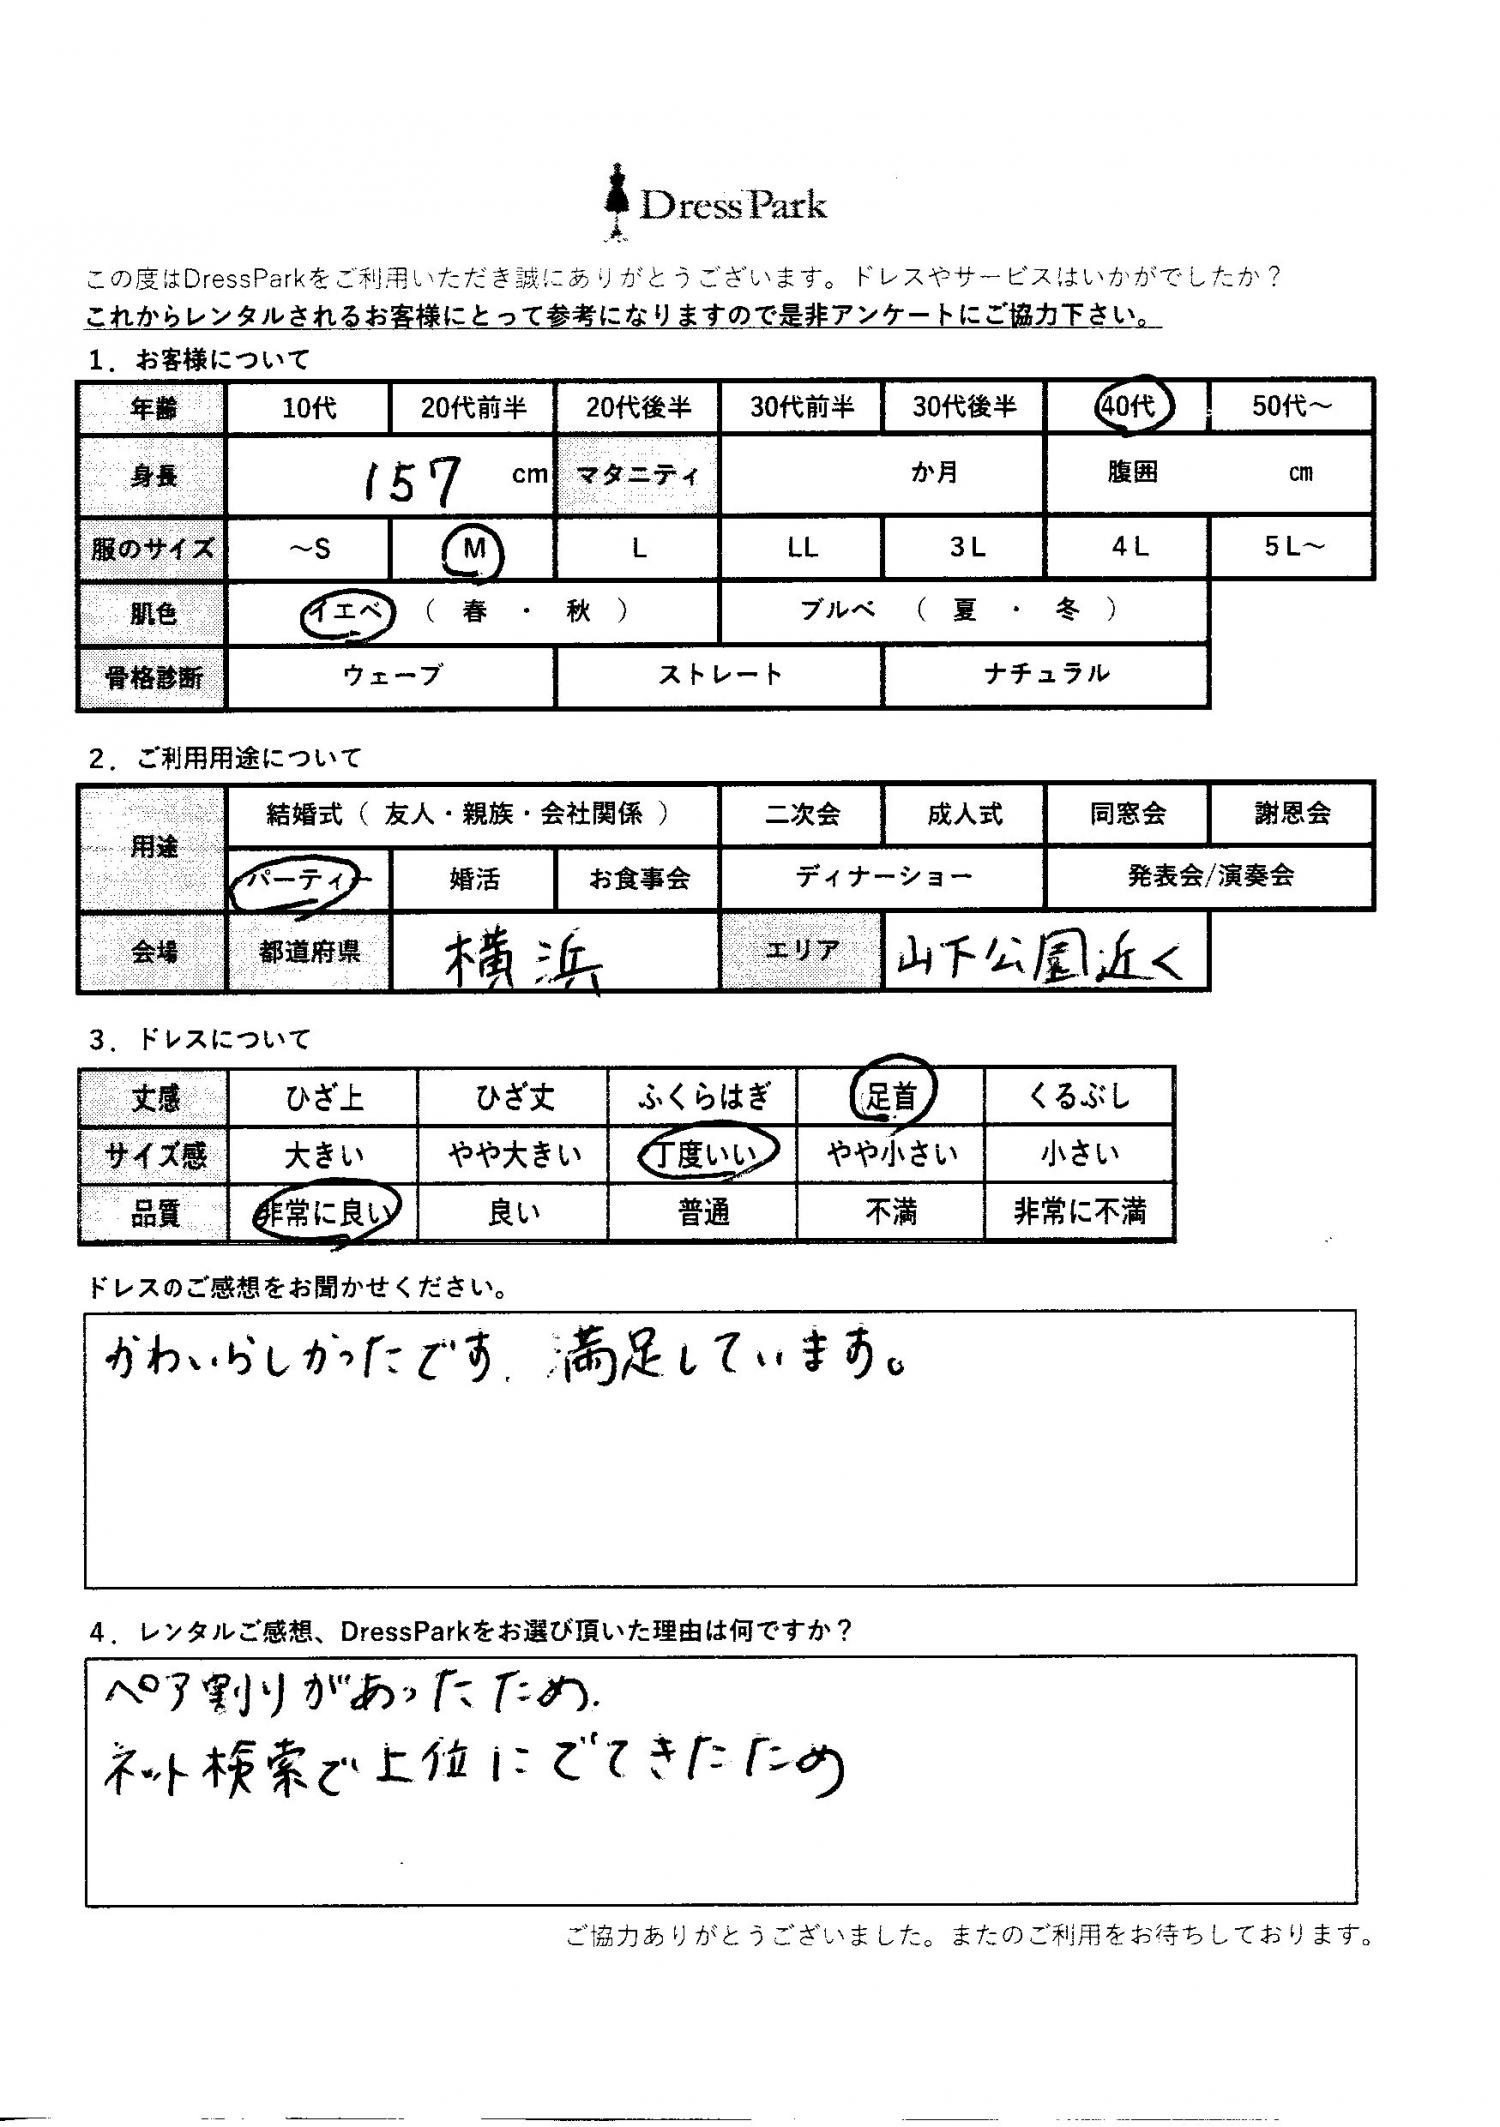 DressPark
この度はDressParkをご利用いただき誠にありがとうございます。ドレスやサービスはいかがでしたか？
これからレンタルされるお客様にとって参考になりますので是非アンケートにご協力下さい。
1．お客様について
年齢 10代 20代前半 20代後半 30代前半 30代後半 40代 50代～
身長 157 cm マタニティ か月 腹囲 cm
服のサイズ ～S M L LL 3L 4L 5L～
肌色 イエベ（ 春 ・ 秋 ） ブルベ （ 夏 ・ 冬 ）
骨格診断 ウェーブ ストレート ナチュラル
2．ご利用用途について
用途 結婚式（ 友人・親族・会社関係 ） 二次会 成人式 同窓会 謝恩会
パーティー 婚活 お食事会 ディナーショー 発表会/演奏会
会場 都道府県 横浜 エリア 山下公園近く
3．ドレスについて
丈感 ひざ上 ひざ丈 ふくらはぎ 足首 くるぶし
サイズ感 大きい やや大きい 丁度いい やや小さい 小さい
品質 非常に良い 良い 普通 不満 非常に不満
ドレスのご感想をお聞かせください。
かわいらしかったです、満足しています。
4．レンタルご感想、DressParkをお選び頂いた理由は何ですか？
ペア割りがあったため、
ネット検索で上位にでてきたため
ご協力ありがとうございました。またのご利用をお待ちしております。